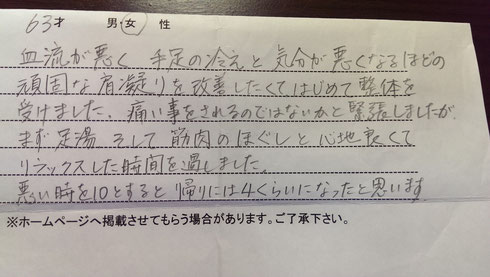 63才　男・女　性
血流が悪く 手足の冷えと気分が悪くなるほどの
頑固な肩凝りを改善したくてはじめて整体を
受けました。痛い事をされるのではないかと緊張しましたが
まず足湯 そして筋肉のほぐしと心地良くて
リラックスした時間を過しました。
悪い時を10とすると帰りには4くらいになったと思います
※ホームページへ掲載させてもらう場合があります。ご了承下さい。